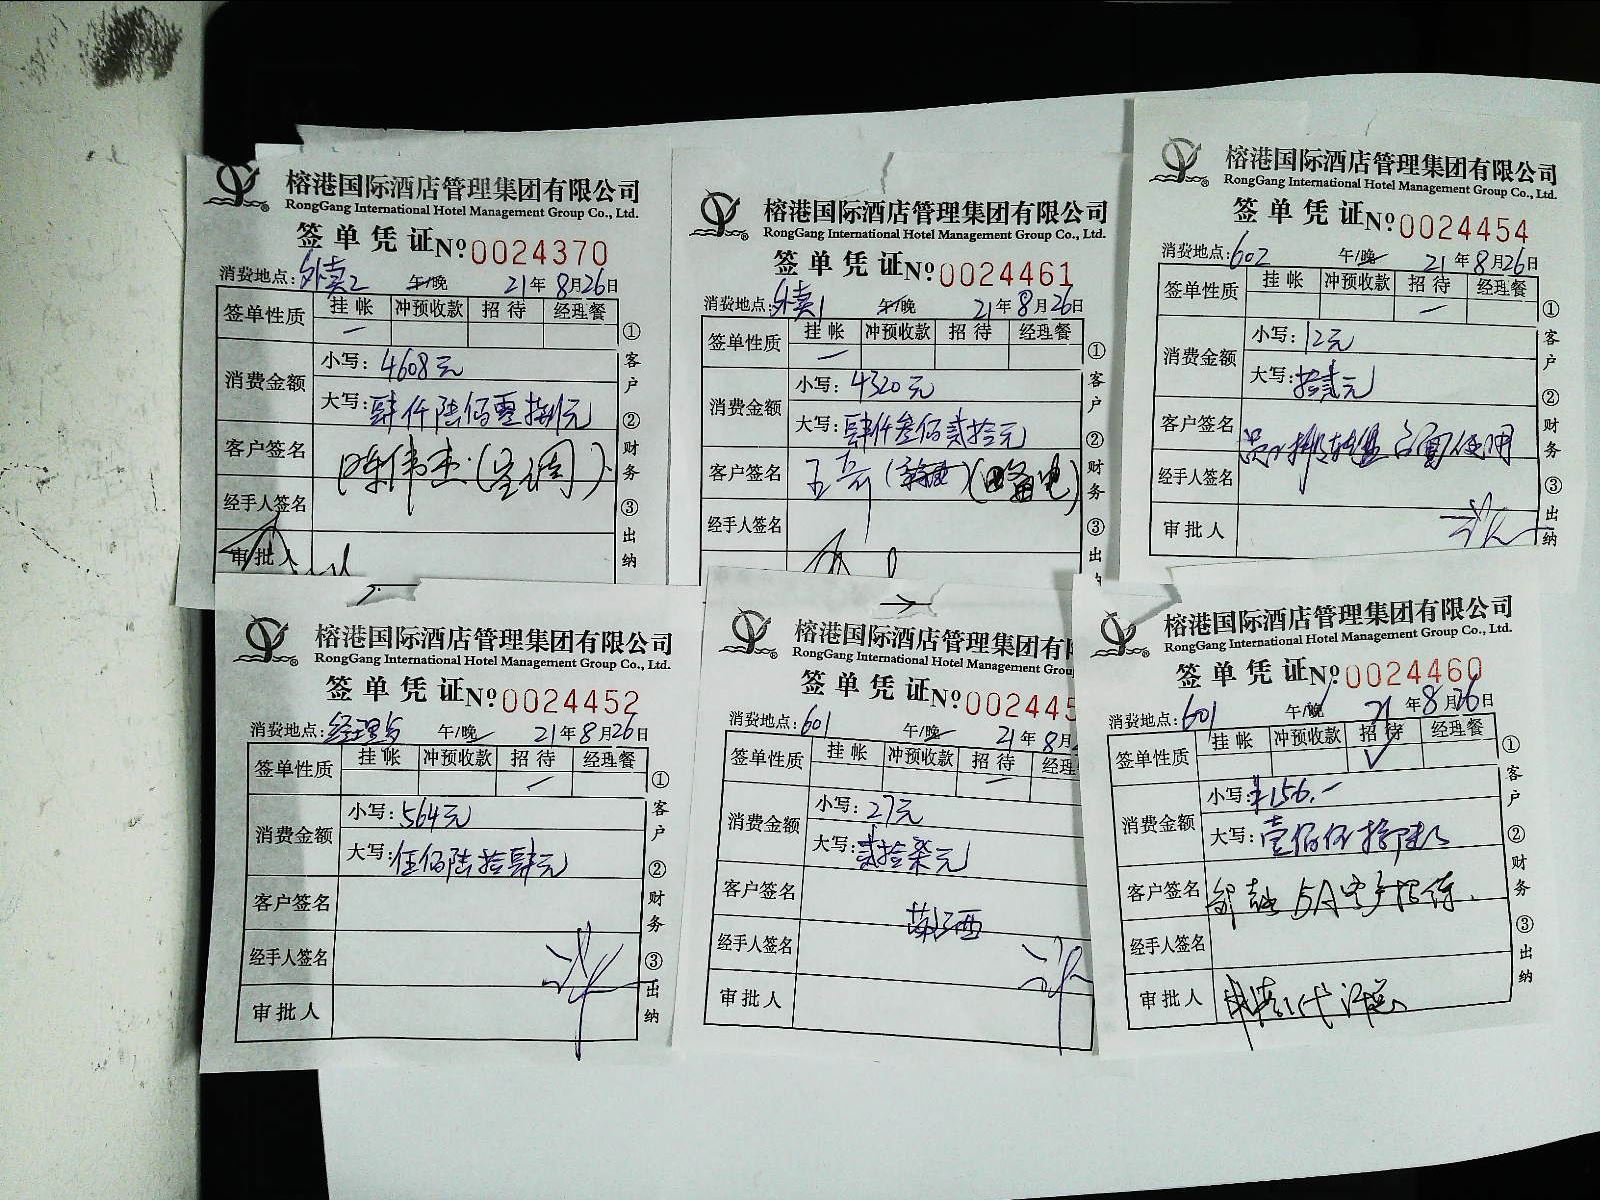 榕港国际酒店管理集团有限公司
RongGang International Hotel Management Group Co., Ltd.
签单凭证 №0024370
消费地点:外卖2 午/晚 21年8月26日
签单性质 挂帐 冲预收款 招待 经理餐
消费金额 小写:4608元
大写:肆仟陆佰零捌元
客户签名 陈伟杰(空调)
经手人签名
审批人
①客户 ②财务 ③出纳
榕港国际酒店管理集团有限公司
RongGang International Hotel Management Group Co., Ltd.
签单凭证 №0024461
消费地点:外卖1 午/晚 21年8月26日
签单性质 挂帐 冲预收款 招待 经理餐
消费金额 小写:4320元
大写:肆仟叁佰贰拾元
客户签名
经手人签名
①客户 ②财务 ③出
榕港国际酒店管理集团有限公司
RongGang International Hotel Management Group Co., Ltd.
签单凭证 №0024454
消费地点:602 午/晚 21年8月26日
签单性质 挂帐 冲预收款 招待 经理餐
消费金额 小写:12元
大写:拾贰元
客户签名
经手人签名
审批人
①客户 ②财务 ③出纳
榕港国际酒店管理集团有限公司
RongGang International Hotel Management Group Co., Ltd.
签单凭证 №0024452
消费地点:经理 午/晚 21年8月26日
签单性质 挂帐 冲预收款 招待 经理餐
消费金额 小写:564元
大写:伍佰陆拾肆元
客户签名
经手人签名
审批人
①客户 ②财务 ③出纳
榕港国际酒店管理集团有
RongGang International Hotel Management Group
签单凭证 №002445
消费地点:601 午/晚 21年8月
签单性质 挂帐 冲预收款 招待 经理
消费金额 小写:27元
大写:贰拾柒元
客户签名
经手人签名
审批人
榕港国际酒店管理集团有限公司
RongGang International Hotel Management Group Co., Ltd.
签单凭证 №0024460
消费地点:601 午/晚 21年8月26日
签单性质 挂帐 冲预收款 招待 经理餐
消费金额 小写:¥156.-
大写:壹佰伍拾陆元
客户签名 客户招待
经手人签名
审批人
①客户 ②财务 ③出纳